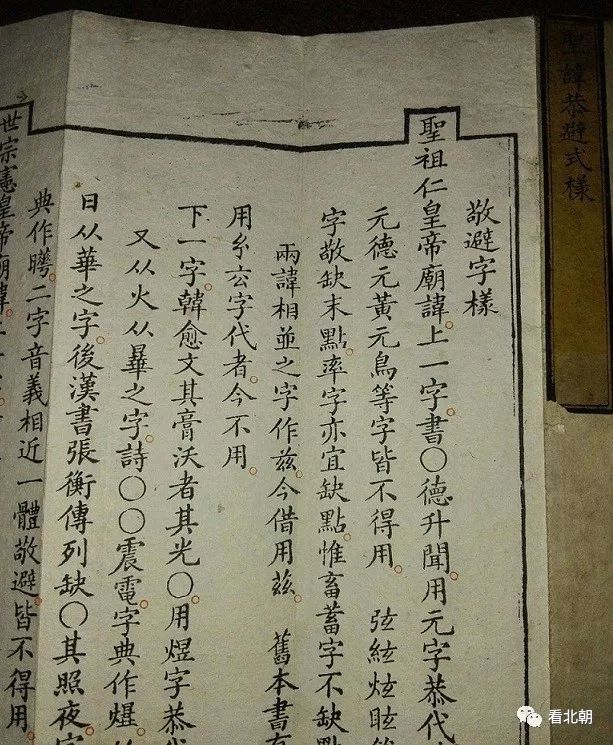 聖諱恭避式樣
敬避字樣
聖祖仁皇帝廟諱。上一字書〇德升聞。用元字恭代
元德元黃元鳥等字皆不得用。 弦絃炫眩等
字敬缺末點。率字亦宜缺點。惟畜蓄字不缺點
兩諱相並之字作兹。今借用茲。 舊本書有
字代者。今不用。
下一字。韓愈文其膏沃者其光〇。用煜字恭代
又从火从畢之字。詩〇〇震電。字典作爗。
日从華之字。後漢書張衡傳列缺〇其照夜。字
典作曄。二字音義相近一體敬避。皆不得用。
世宗憲皇帝廟諱。
看北朝